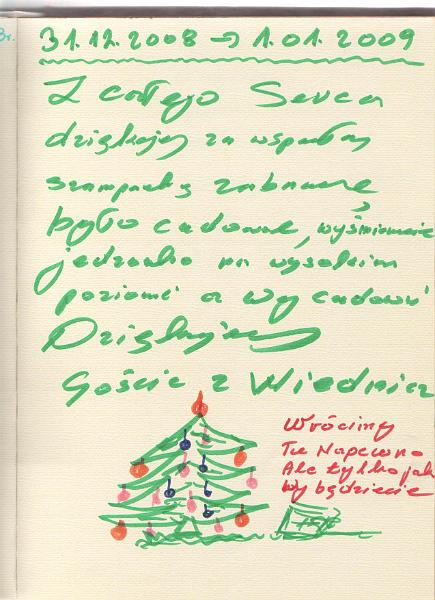 31.12.2008 → 1.01.2009
Z całego Serca
dziękujemy za wspaniałą
szampańską zabawę
było cudownie, wyśmienicie
jedzonko na wysokim
poziomie a Wy cudowni
Dziękujemy
Goście z Wiednia
Wrócimy
Tu Napewno
Ale tylko jak
Wy będziecie